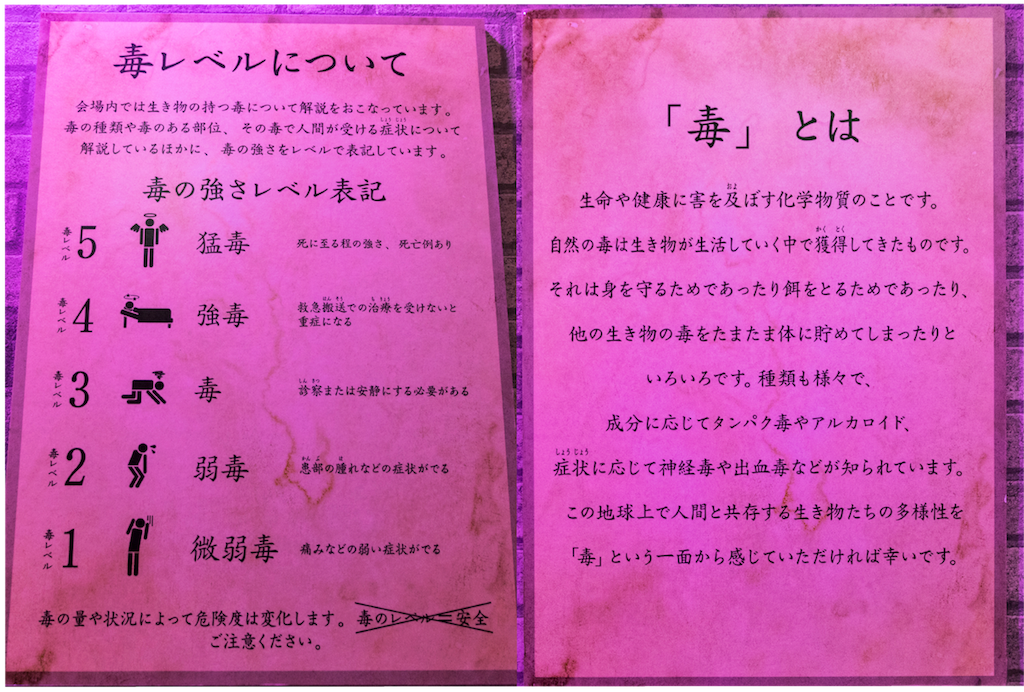 毒レベルについて
会場内では生き物の持つ毒について解説をおこなっています。
毒の種類や毒のある部位、その毒で人間が受ける症状について
解説しているほかに、毒の強さをレベルで表記しています。
毒の強さレベル表記
毒レベル5 猛毒 死に至る程の強さ、死亡例あり
毒レベル4 強毒 救急搬送での治療を受けないと
重症になる
毒レベル3 毒 診察または安静にする必要がある
毒レベル2 弱毒 患部の腫れなどの症状がでる
毒レベル1 微弱毒 痛みなどの弱い症状がでる
毒の量や状況によって危険度は変化します。毒のレベル=安全
ご注意ください。
「毒」とは
生命や健康に害を及ぼす化学物質のことです。
自然の毒は生き物が生活していく中で獲得してきたものです。
それは身を守るためであったり餌をとるためであったり、
他の生き物の毒をたまたま体に貯めてしまったりと
いろいろです。種類も様々で、
成分に応じてタンパク毒やアルカロイド、
症状に応じて神経毒や出血毒などが知られています。
この地球上で人間と共存する生き物たちの多様性を
「毒」という一面から感じていただければ幸いです。